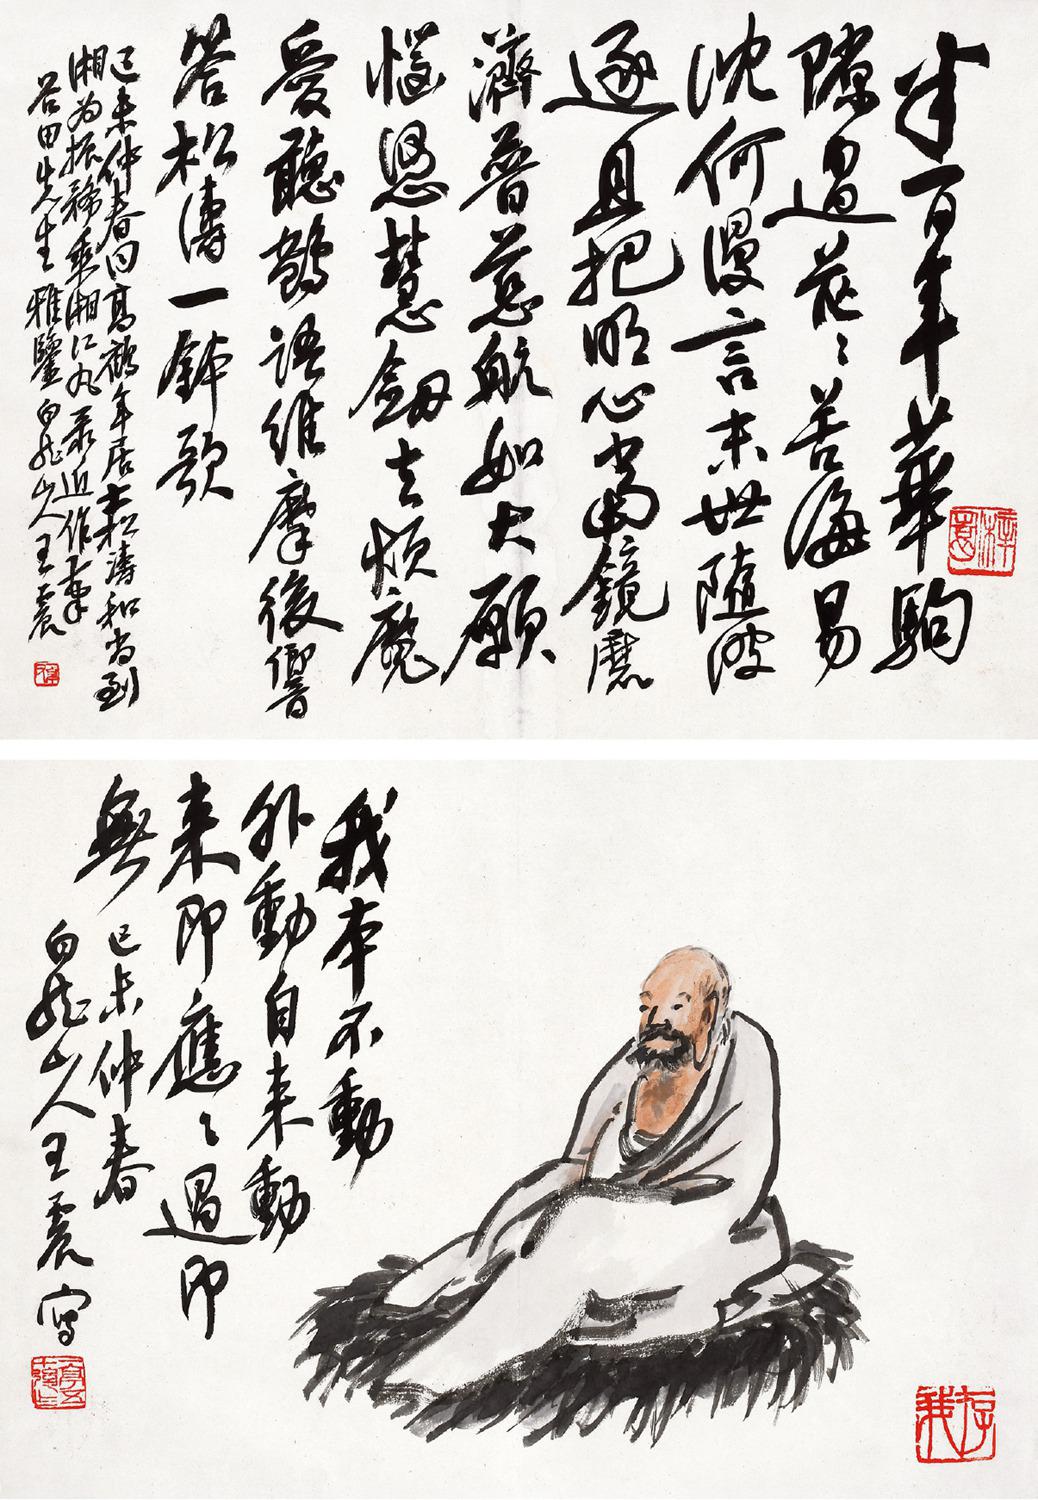 半百年華駒
隙過茫々苦海易
沈何漫言末世隨波
逐且把明心當鏡磨
濟普慈航如大願
恩慧劍去煩魔
愛聽鶴語維摩後響
答松濤一鉢歌
己未仲春同高鶴年居士松濤和尚到
湘為振務乘湘江丸录近作一章
若田先生雅鑒 白龍山人王震
我本不動
外動自來動
來即應々過即
無 己未仲春
白龍山人王震寫